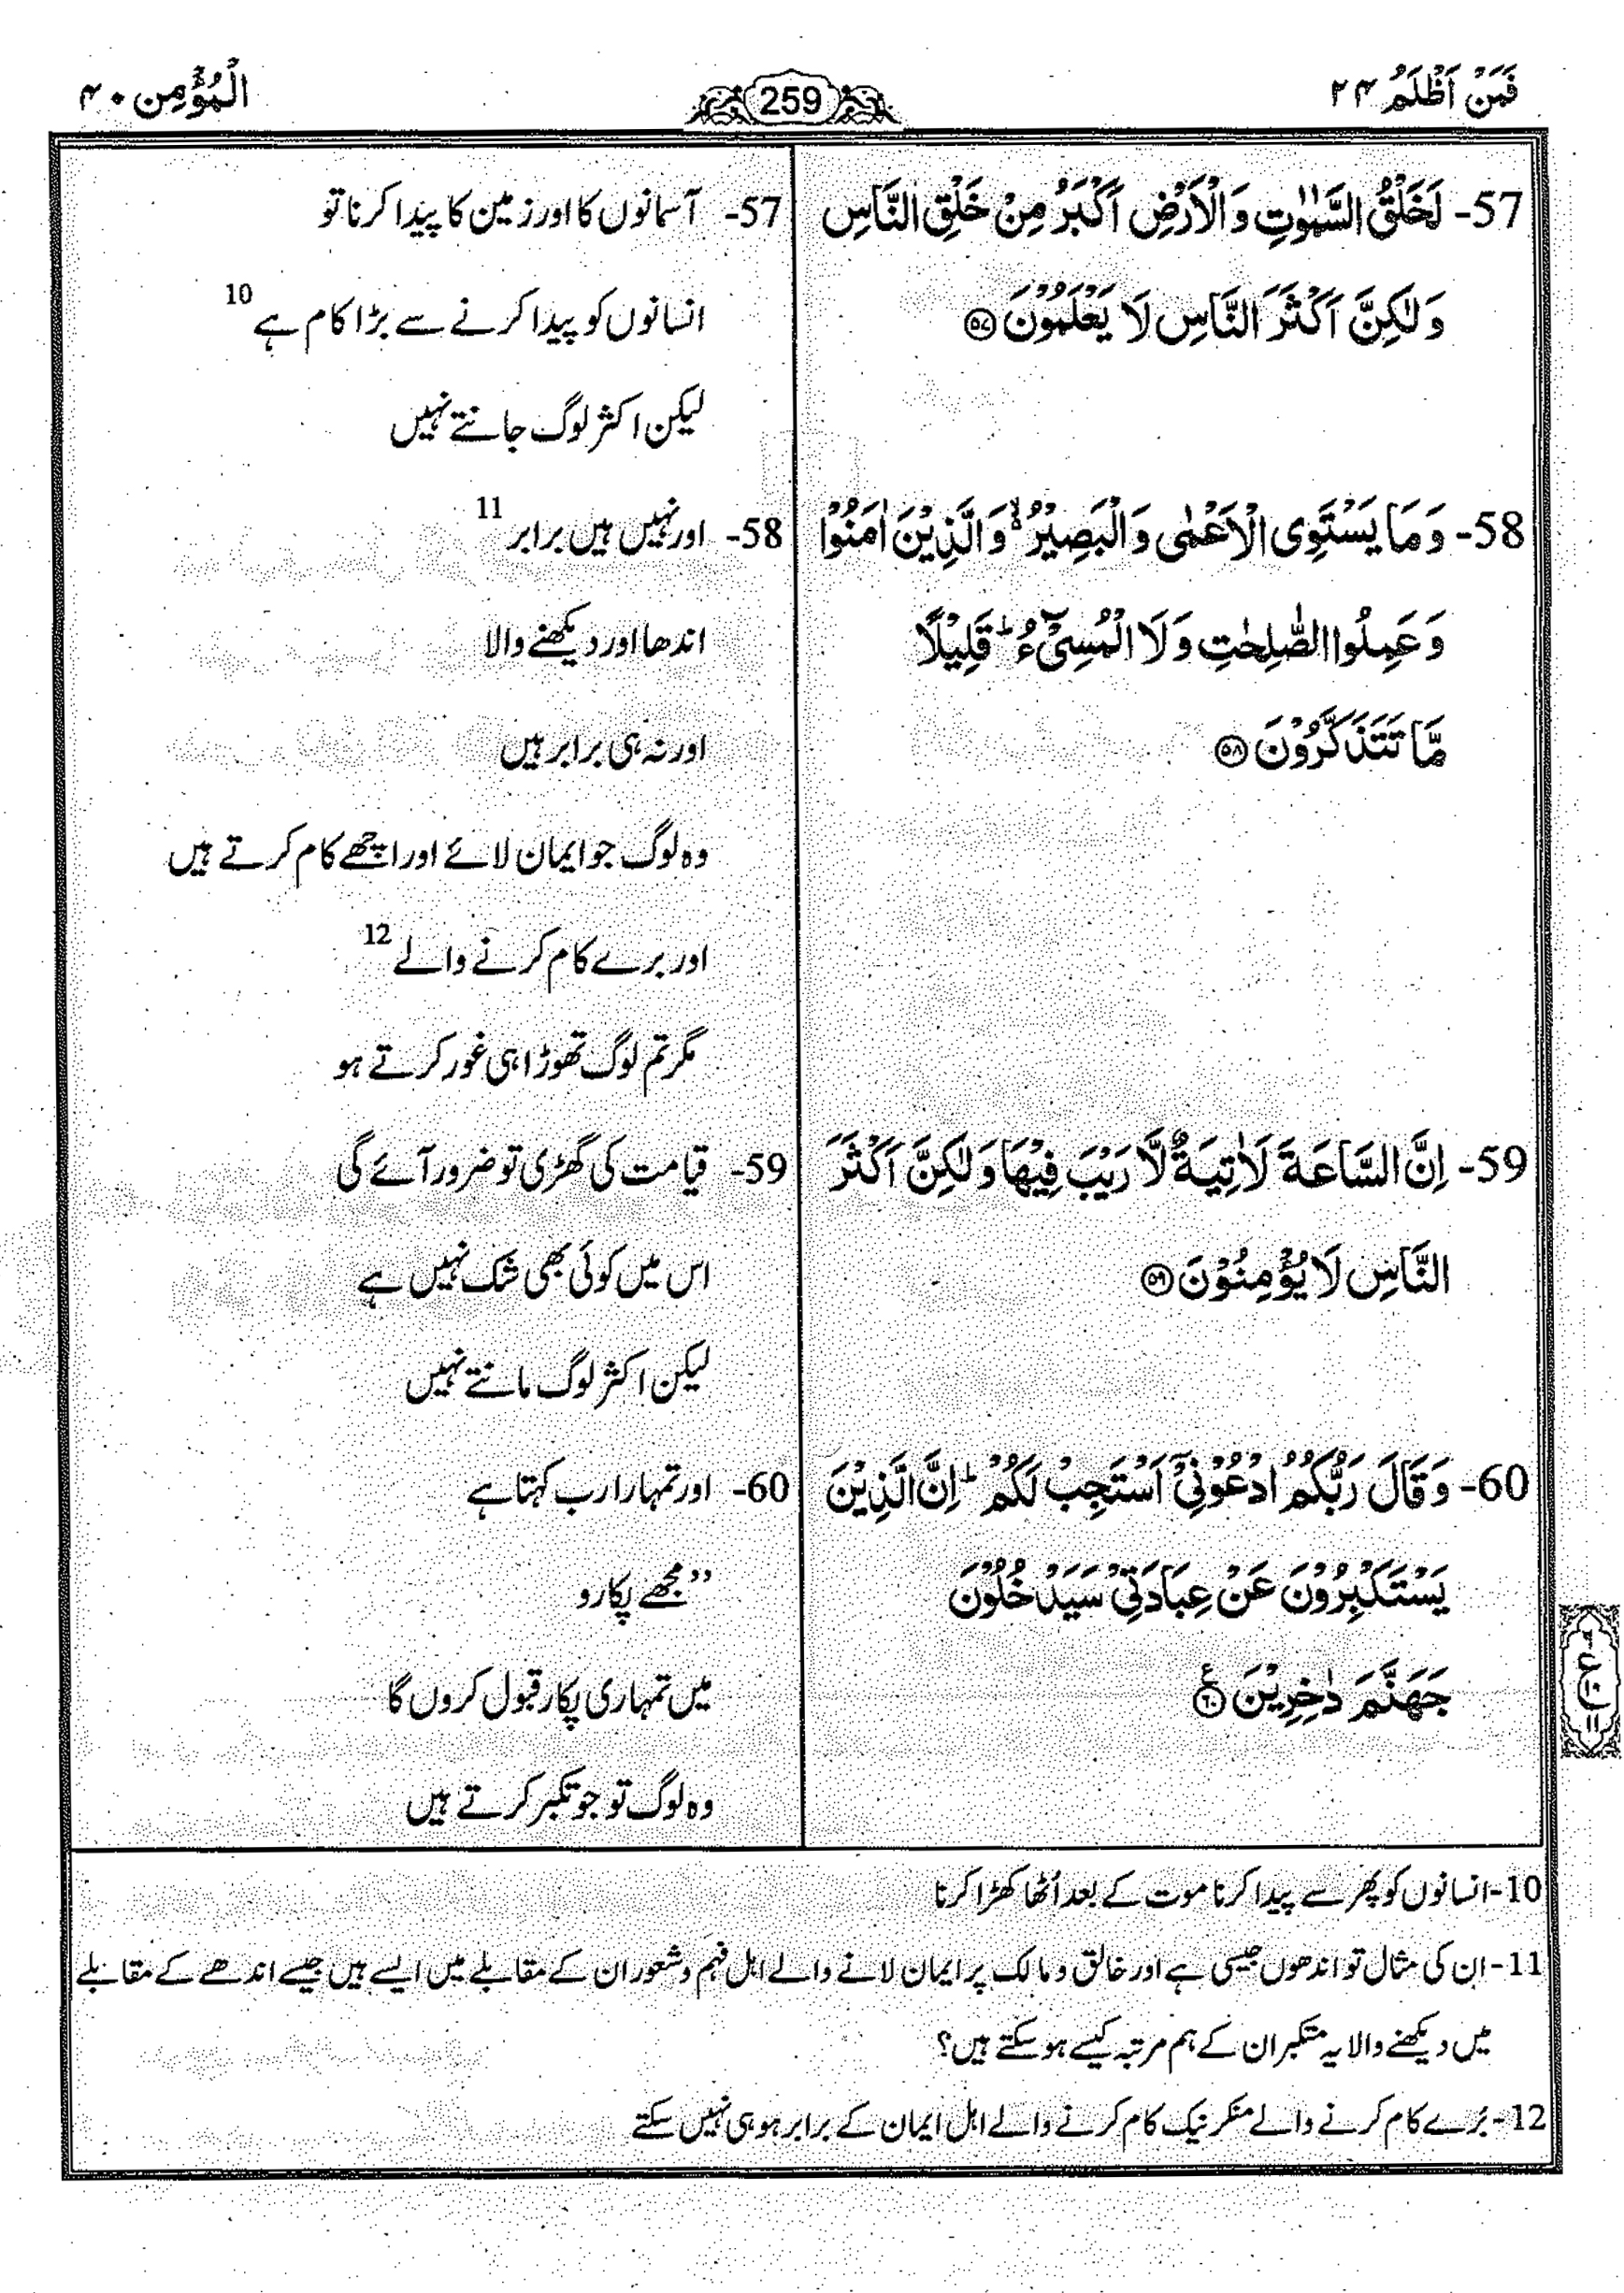 فَمَنْ اَظْلَمُ ۲۴
259
الْمُؤْمِن ۴۰
57- لَخَلْقُ السَّمٰوٰتِ وَالْاَرْضِ اَكْبَرُ مِنْ خَلْقِ النَّاسِ
وَلٰكِنَّ اَكْثَرَ النَّاسِ لَا يَعْلَمُوْنَ ﴿۵۷﴾
57- آسمانوں کا اور زمین کا پیدا کرنا تو
انسانوں کو پیدا کرنے سے بڑا کام ہے 10
لیکن اکثر لوگ جانتے نہیں
58- وَمَا يَسْتَوِى الْاَعْمٰى وَالْبَصِيْرُ ۙ وَالَّذِيْنَ اٰمَنُوْا
وَعَمِلُوا الصّٰلِحٰتِ وَلَا الْمُسِىْٓءُ ؕ قَلِيْلًا
مَّا تَتَذَكَّرُوْنَ ﴿۵۸﴾
58- اور نہیں ہیں برابر 11
اندھا اور دیکھنے والا
اور نہ ہی برابر ہیں
وہ لوگ جو ایمان لائے اور اچھے کام کرتے ہیں
اور برے کام کرنے والے 12
مگر تم لوگ تھوڑا ہی غور کرتے ہو
59- اِنَّ السَّاعَةَ لَاٰتِيَةٌ لَّا رَيْبَ فِيْهَا وَلٰكِنَّ اَكْثَرَ
النَّاسِ لَا يُؤْمِنُوْنَ ﴿۵۹﴾
59- قیامت کی گھڑی تو ضرور آئے گی
اس میں کوئی بھی شک نہیں ہے
لیکن اکثر لوگ مانتے نہیں
60- وَقَالَ رَبُّكُمُ ادْعُوْنِىْٓ اَسْتَجِبْ لَكُمْ ؕ اِنَّ الَّذِيْنَ
يَسْتَكْبِرُوْنَ عَنْ عِبَادَتِىْ سَيَدْخُلُوْنَ
جَهَنَّمَ دٰخِرِيْنَ ﴿۶۰﴾ ع
60- اور تمہارا رب کہتا ہے
”مجھے پکارو
میں تمہاری پکار قبول کروں گا
وہ لوگ تو جو تکبر کرتے ہیں
10- انسانوں کو پھر سے پیدا کرنا موت کے بعد اُٹھا کھڑا کرنا
11- ان کی مثال تو اندھوں جیسی ہے اور خالق و مالک پر ایمان لانے والے اہل فہم و شعور ان کے مقابلے میں ایسے ہیں جیسے اندھے کے مقابلے
میں دیکھنے والا یہ متکبر ان کے ہم مرتبہ کیسے ہو سکتے ہیں؟
12- بُرے کام کرنے والے منکر نیک کام کرنے والے اہل ایمان کے برابر ہو ہی نہیں سکتے